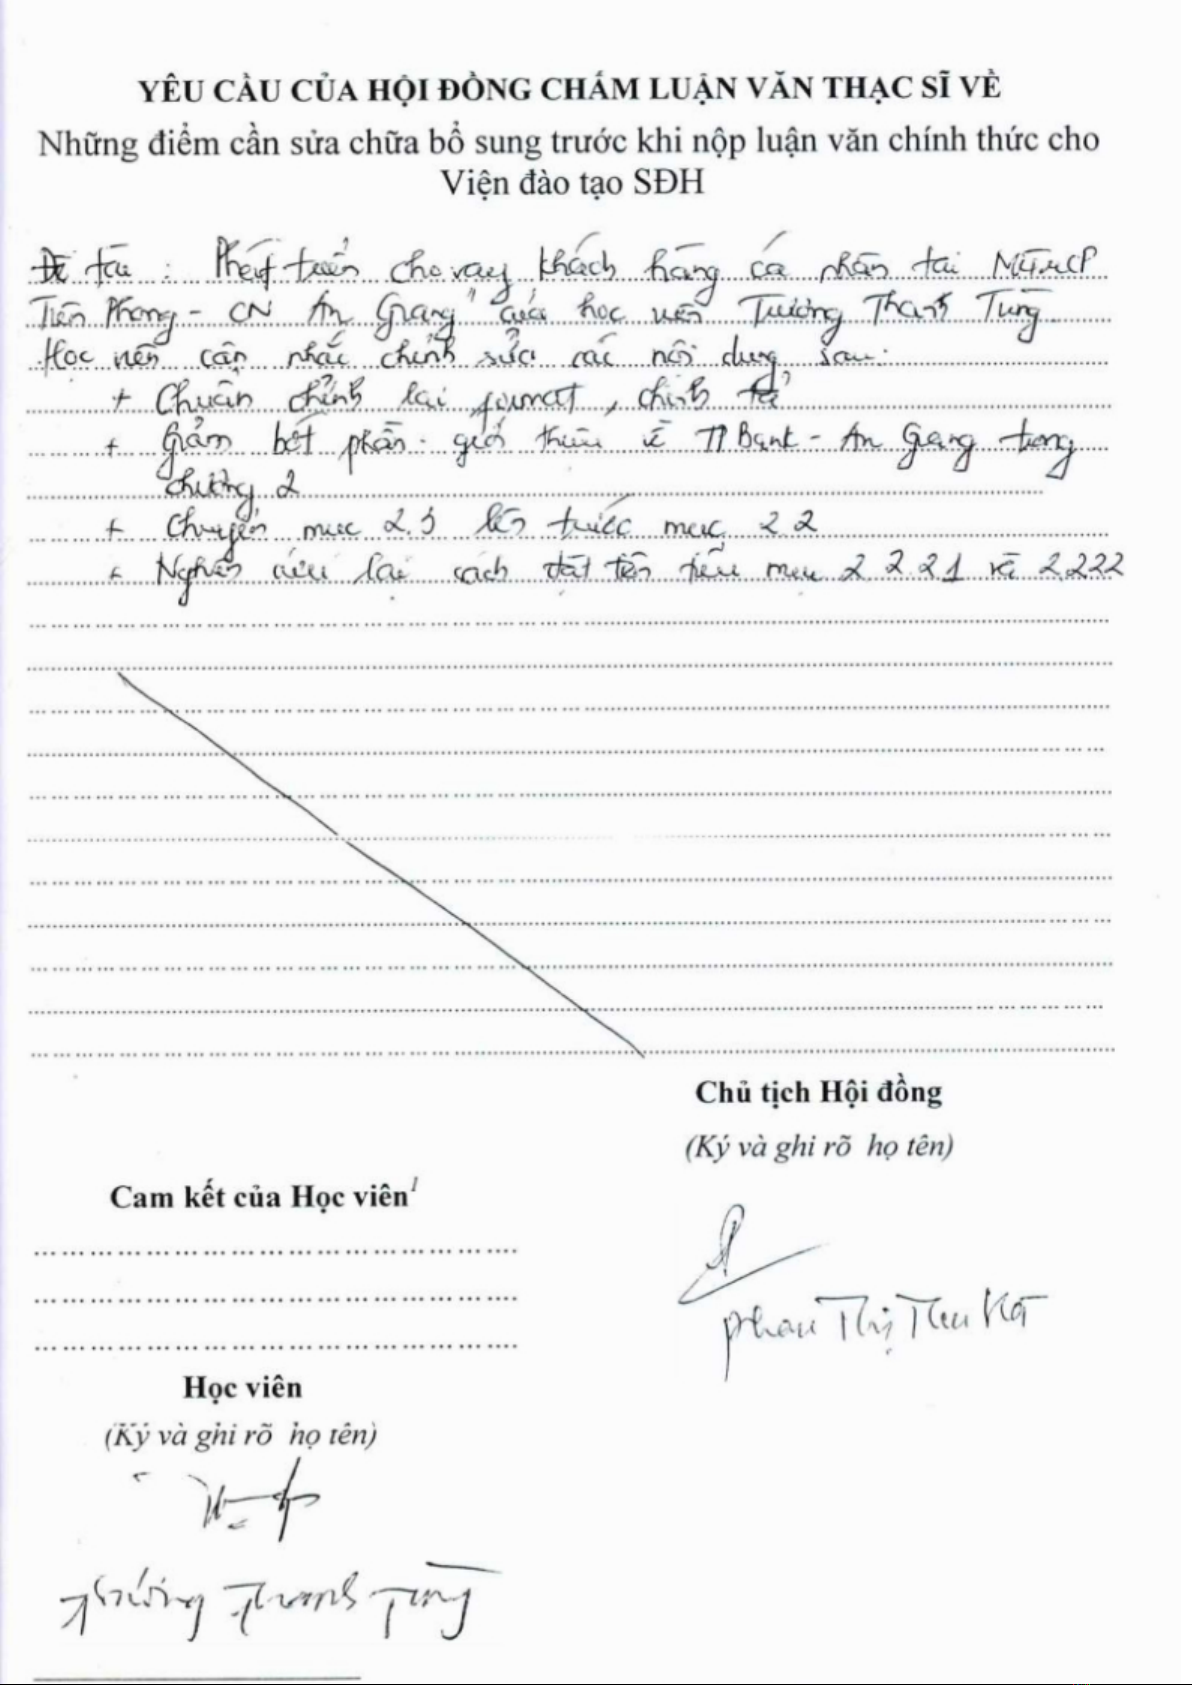 YÊU CẦU CỦA HỘI ĐỒNG CHẤM LUẬN VĂN THẠC SĨ VỀ
Những điểm cần sửa chữa bổ sung trước khi nộp luận văn chính thức cho
Viện đào tạo SĐH
Đề tài : Phát triển cho vay khách hàng cá nhân tại NHTMCP
Tiên Phong - CN An Giang" của học viên Trương Thanh Tùng
Học viên cân nhắc chỉnh sửa các nội dung sau:
+ Chuẩn chỉnh lại format, chính tả
+ Giảm bớt phần giới thiệu về TPBank - An Giang trong
chương 2
+ Chuyển mục 2.3 lên trước mục 2.2
+ Nghiên cứu lại cách đặt tên tiểu mục 2.2.2.1 và 2.2.2.2
Chủ tịch Hội đồng
(Ký và ghi rõ họ tên)
Cam kết của Học viên1
Phan Thị Thu Hà
Học viên
(Ký và ghi rõ họ tên)
Trương Thanh Tùng